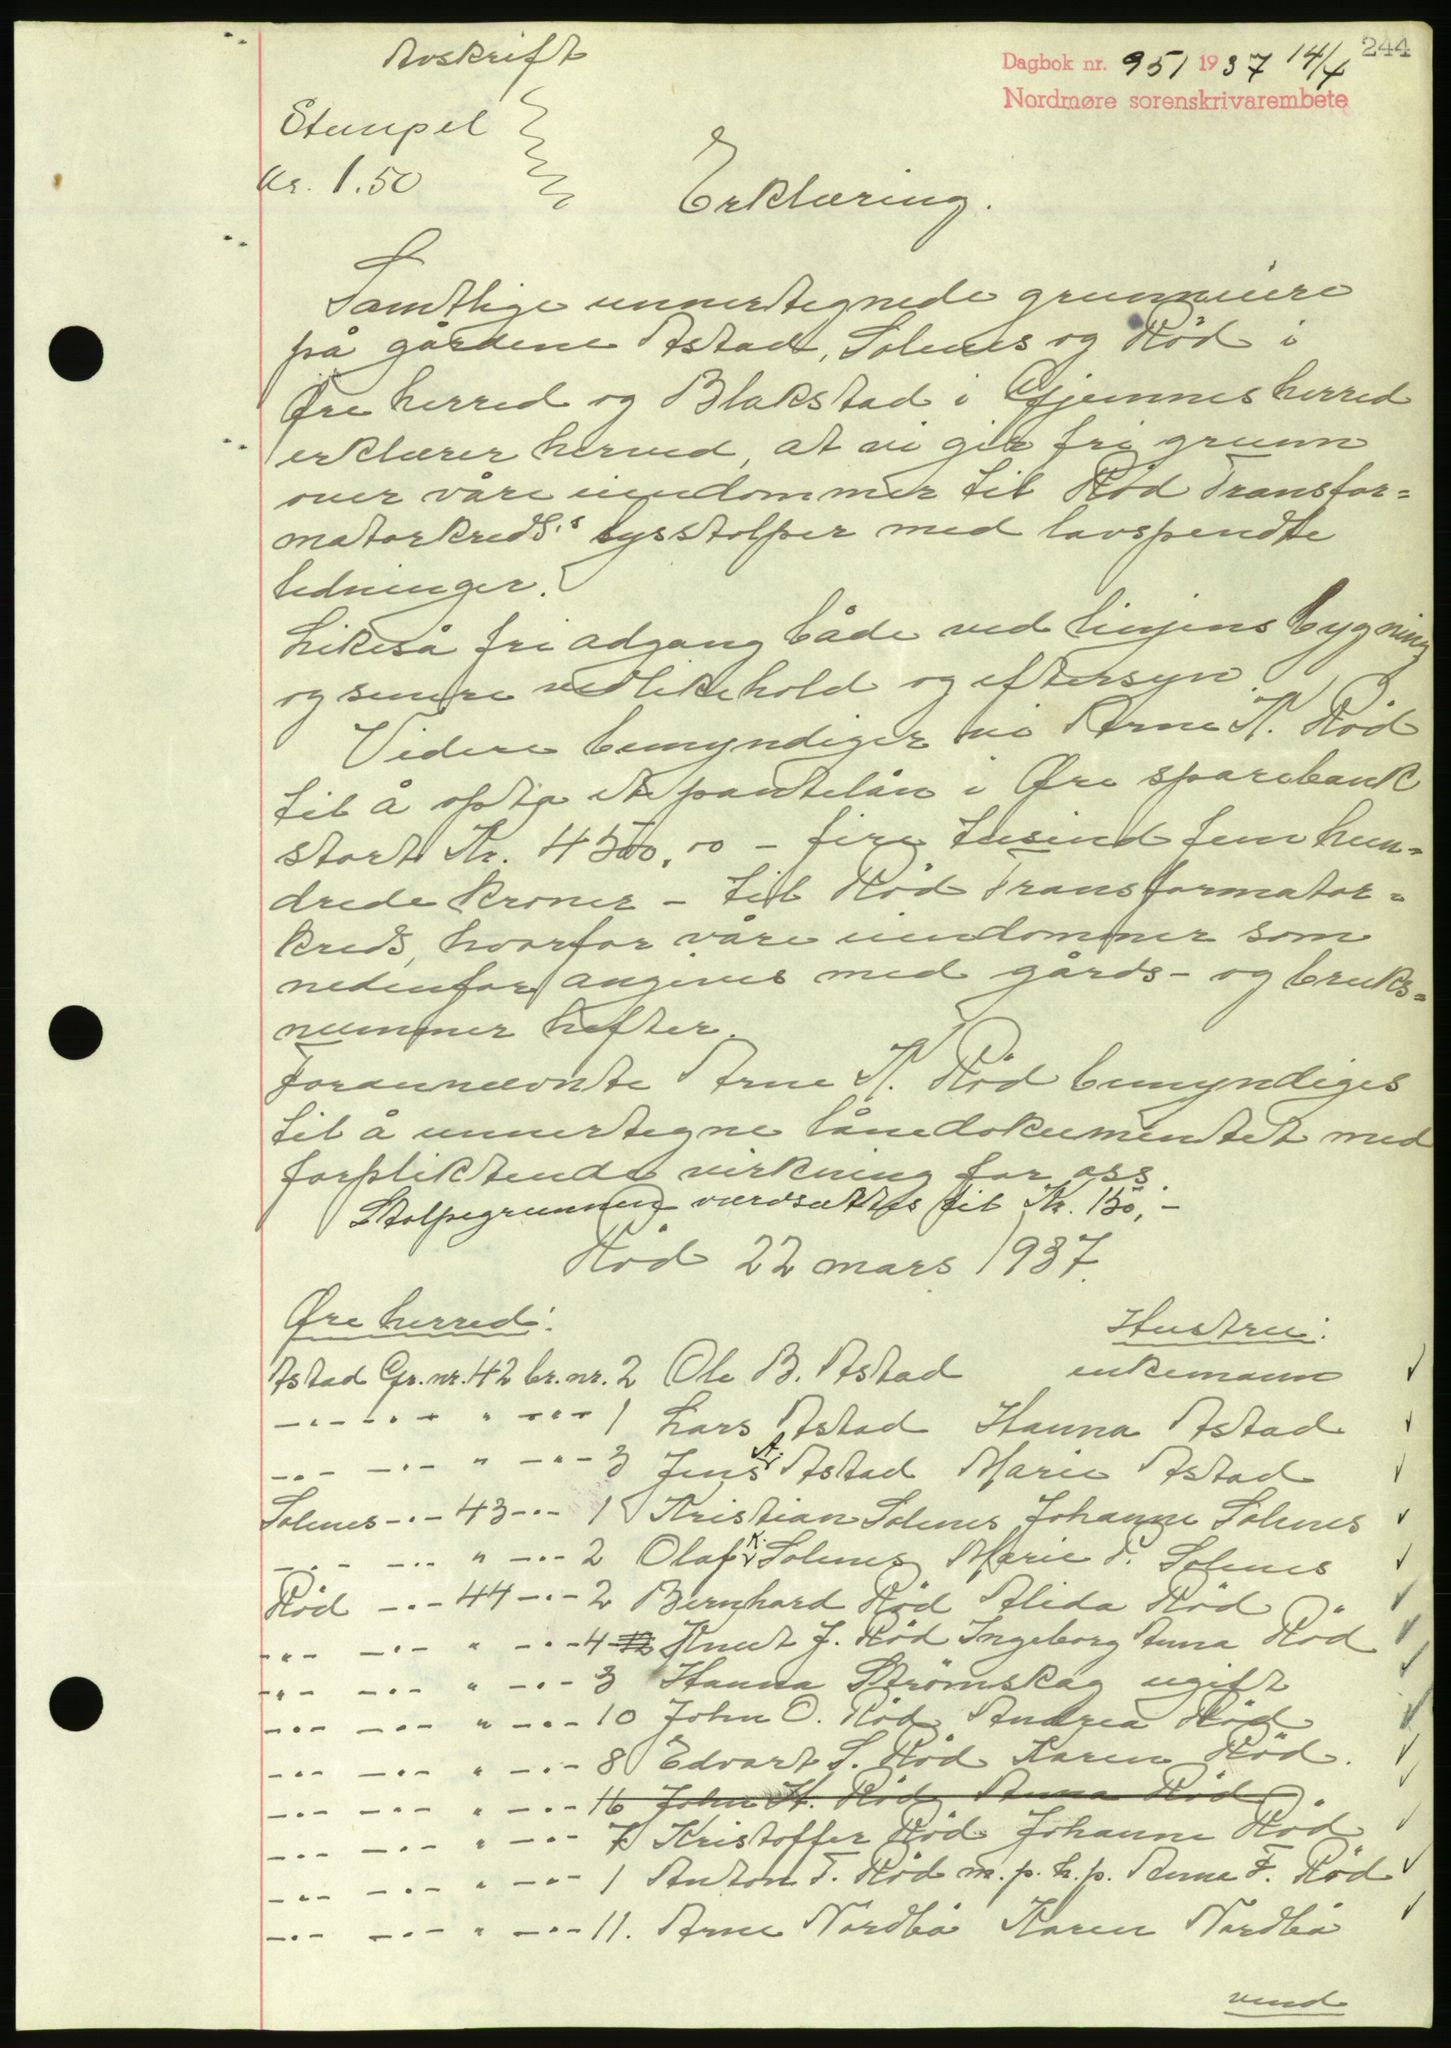 244
Avskrift
Dagbok nr. 951 1937 14/4
Nordmøre sorenskrivarembete
Stempel
Kr. 1.50
Erklæring.
Samtlige unnertegnede grunneiere
på gårdene Astad, Solenes og Röd i
Øre herred og Blakstad i Gjemnes herred
erklærer herved, at vi gir fri grunn
over våre eiendommer til Röd Transfor=
matorkreds's lysstolper med lavspendte
ledninger.
Likeså fri adgang både ved linjens bygning
og senere vedlikehold og eftersyn.
Videre bemyndiger vi Arne K. Röd
til å opta et pantelån i Øre sparebank
stort Kr. 4500,00 - fire tusind fem hun=
drede kroner - til Röd Transformator=
kreds, hvorfor våre eiendommer som
nedenfor angives med gårds- og bruks=
nummer hefter.
Forannevnte Arne K. Röd bemyndiges
til å unnertegne lånedokumentet med
forpliktende virkning for oss.
Stolpegrunnen verdsettes til Kr. 150,-
Röd 22 mars 1937.
Øre herred: Hustru:
Astad Gr. nr. 42 br. nr. 2 Ole B. Astad enkemann
-"- -"- " -"- 1 Lars Astad Hanna Astad
-"- -"- " -"- 3 Jens A. Astad Marie Astad
Solenes -"- 43 -"- 1 Kristian Solenes Johanne Solenes
-"- -"- " -"- 2 Olaf K. Solenes Marie F. Solenes
Röd -"- 44 -"- 2 Bernhard Röd Alida Röd
-"- -"- " -"- 4 Knut J. Röd Ingeborg Anna Röd
-"- -"- " -"- 3 Hanna Strömskag ugift
-"- -"- " -"- 10 John O. Röd Andrea Röd
-"- -"- " -"- 8 Edvart S. Röd Karen Röd.
-"- -"- " -"- 16 John H. Röd Anna Röd.
-"- -"- " -"- 7 Kristoffer Röd Johanne Röd
-"- -"- " -"- 1 Anton F. Röd m.p.h.p. Anne F. Röd
-"- -"- " -"- 11. Arne Nordbö Karen Nordbö
vend